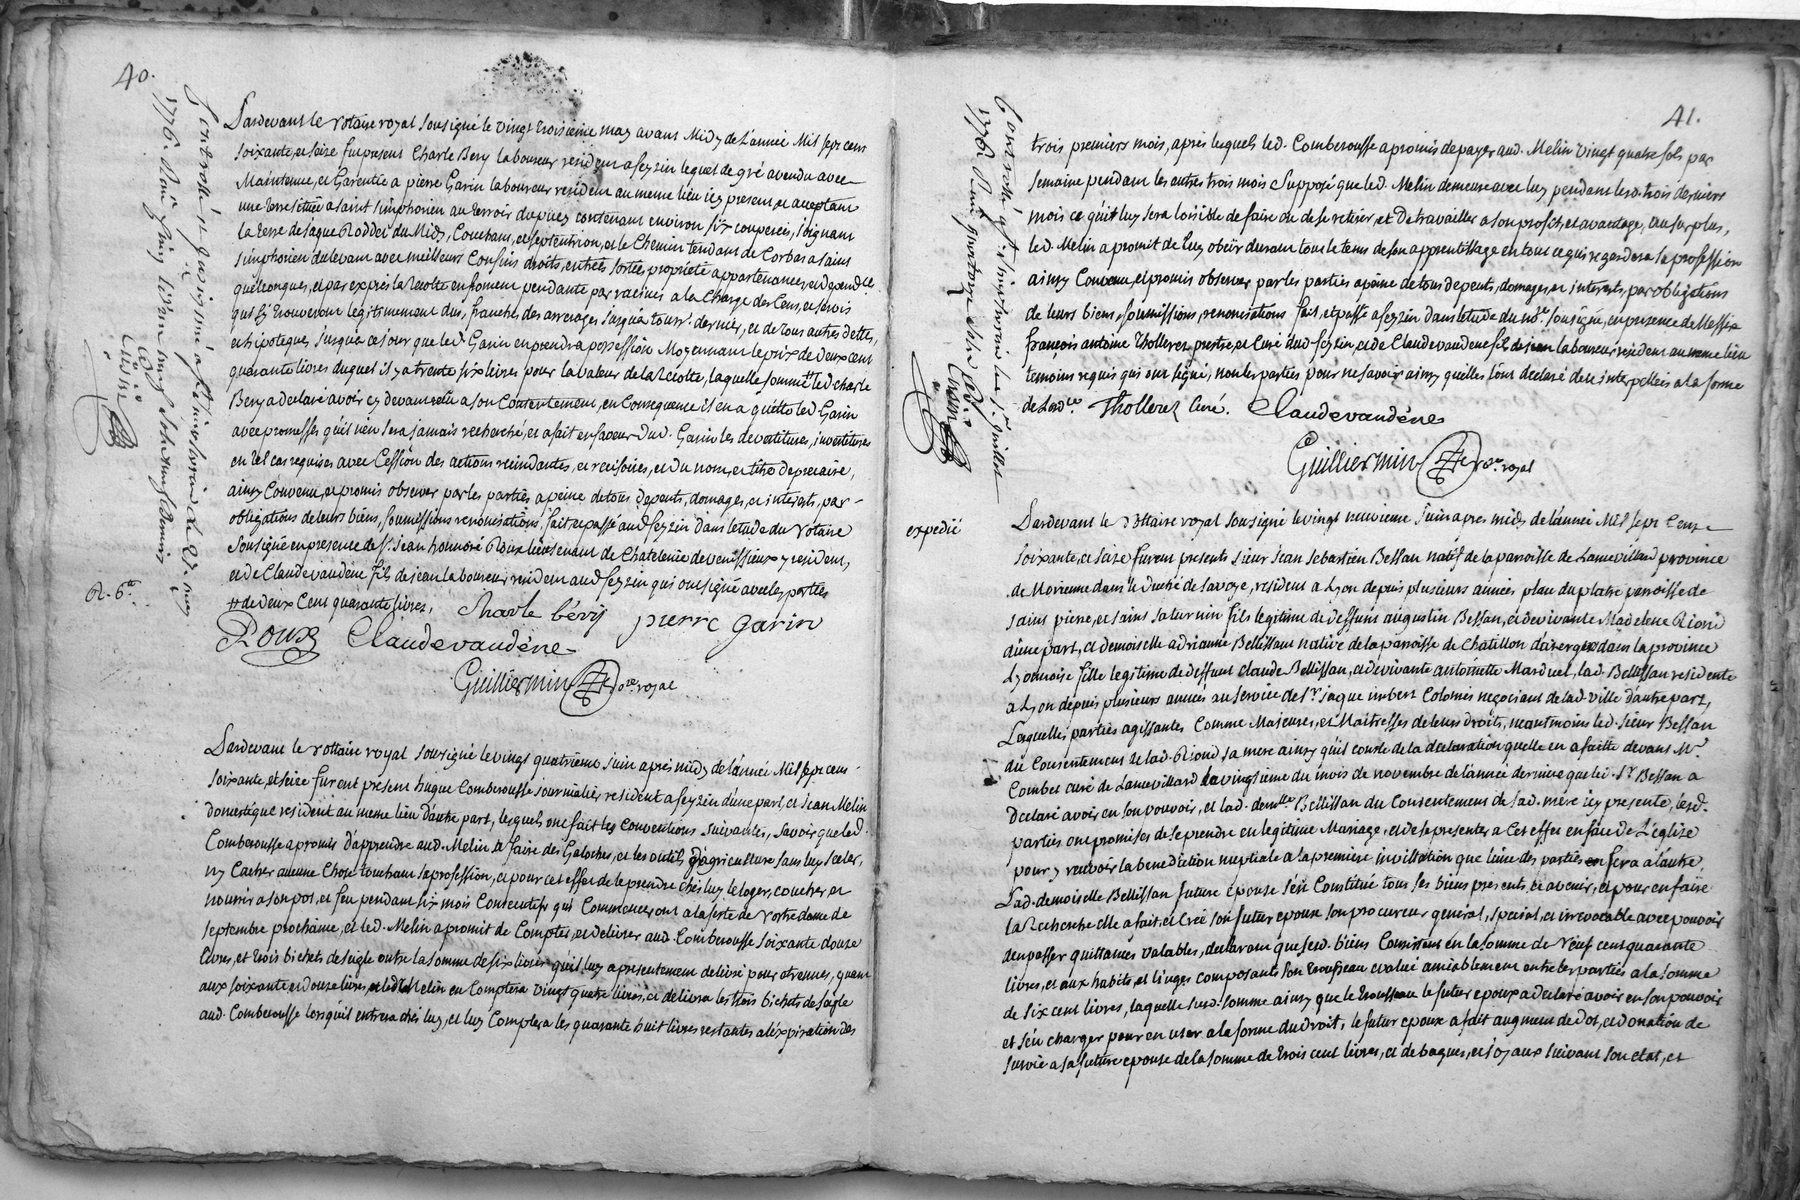 40.
Pardevant le Notaire royal sousigné le vingt troisieme may avant Midy de L'année Mil sept cent
soixante, et seize fut present Charle Bery laboureur resident a feyzin lequel de gré a vendu avec
Maintenue, et Garentie a pierre Garin laboureur resident au meme lieu icy present et acceptant
une terre située a saint simphorien au terroir du puy contenant environ six couperées, joignant
la terre de jaque Roddet du Midy, Couchant, et septentrion, et le Chemin tendant de Corbas a saint
simphorien du levant avec meilleurs Confins droits, entrées sorties proprieté appartenances, et depend.ces
quelconques, et par exprés la Recolte en froment pendante par racines a la Charge des Cens, et servis
qui s'y trouveront legitimement dus, franche des arrerages jusqu'a tours. dernier, et de tous autres dettes,
et hipoteques jusqu'a ce jour que led. Garin en prendra possession Moyennant le prix de deux cent
quarante livres duquel il y a trente six livres pour la valeur de la Recolte, laquelle somme # led. charle
Bery a declaré avoir cy devant reçu a son Contentement, en Consequence il en a quitté led. Garin
avec promesses qu'il n'en sera jamais recherché, et a fait en faveur dud. Garin les devestitures, investitures
en tel cas requises avec Cession des actions rescindantes, et rescisoires, et du nom, et titre de precaire,
ainsy Convenu, et promis observer par les parties a peine de tous depents, domages, et interets, par
obligations de leurs biens, soumissions renonciations, fait et passé aud. feyzin dans l'etude du Notaire
sousigné en presence de sr. jean honnoré Roux lieutenant de Chatelenie de venissieux y resident,
et de Claude vandéne fils de jean laboureur resident aud. feyzin qui ont signé avec les parties
# de deux Cent quarante livres,
charle béry pierre garin
Roux Claude vandéne
Guilliermin No.re royal
Controllé
1776. Reçu
R. 6.
Pardevant le Nottaire royal sousigné le vingt quatrieme juin aprés midy de l'année Mil sept cent
soixante, et seize furent present hugue Comberousse journalier resident a feyzin d'une part, et jean Melin
domestique resident au meme lieu d'autre part, lesquels ont fait les conventions suivantes, savoir que led.
Comberousse a promis d'apprendre aud. Melin a faire des Galoches, et les outils d'agriculture sans luy receler,
ny Cacher aucune Chose touchant sa profession, et pour cet effet de le prendre ches luy le loger, coucher, et
nourrir a son pot, et feu pendant six mois Consecutifs qui Commenceront a la feste de Nostre dame de
septembre prochaine, et led. Melin a promit de Compter, et delivrer aud. Comberousse soixante douze
livres, et trois bichets de seigle outre la somme de six livres qu'il luy a presentement delivré pour etrennes, quant
aux soixante et douze livres, led. Melin en Comptera vingt quatre livres, et delivra les trois bichets de segle
aud. Comberousse lorsqu'il entrera chés luy, et luy Comptera les quarante huit livres restantes a l'expiration des
41.
trois premiers mois, aprés lequels led. Comberousse a promis de payer aud. Melin vingt quatre sols par
semaine pendant les autres trois mois supposé que led. Melin demeure avec luy pendant lesd. trois derniers
mois ce qu'il luy sera loisible de faire ou de se retirer, et de travailler a son profit, et avantage, au surplus,
led. Melin a promit de luy obeir durant tout le tems de son apprentissage en tout ce qui regardera sa profession
ainsy Convenu, et promis observer par les parties a peine de tous depents, domages, et interets, par obligations
de leurs biens, soumissions, renonciations fait, et passé a feyzin dans l'etude du No.re sousigné, en presence de Messire
françois antoine Thollerez prestre, et Curé dud. feyzin, et de Claude vandéne fils de jean laboureur resident au meme lieu
temoins requis qui ont signé, non les parties pour ne savoir ainsy quelles l'ont declaré de ce interpellées a la forme
de Lord.ce Thollerez Curé. Claude vandéne
Guilliermin No.re royal
Controllé
1776. Reçu
expedié
Pardevant le Nottaire royal sousigné le vingt neuvieme juin apres midy de l'année Mil sept Cent
soixante, et seize furent presents sieur jean sebastien Bessan natif de la paroisse de Lanevillard province
de Morienne dans le duché de savoye, resident a Lyon depuis plusieurs années place du platre paroisse de
saint pierre, et saint saturnin fils legitime de deffunt augustin Bessan, et de vivante Madeleine Riond
d'une part, et demoiselle adrianne Bellissan native de la paroisse de Chatillon d'azergues dans la province
Lyonnoise fille legitime de deffunt claude Bellissan, et de vivante antoinette Marduel, lad. Bellissan residente
a Lyon depuis plusieurs années au service de sr. jaque imbert Colomés negociant de lad. ville d'autre part,
Laquelles parties agissantes Comme Majeures, et Maitresses de leurs droits, neantmoins led. sieur Bessan
du Consentement de lad. Riond sa mere ainsy qu'il conste de la declaration quelle en a faitte devant Mr.
Combet curé de Lanevillard le vingtieme du mois de novembre de l'année derniere que led. sr. Bessan a
declaré avoir en son pouvoir, et lad. demlle. Bellissan du Consentement de sad. mere icy presente, lesd.
parties ont promises de se prendre en legitime Mariage, et de se presenter a Cet effet en face de L'eglise
pour y recevoir la benediction nuptiale a la premiere invittation que l'une des parties en fera a l'autre
Lad. demoiselle Bellissan future epouse s'est Constitué tous ses biens presents, et avenir, et pour en faire
la Recherche elle a fait, et Creé son futur epoux son procureur general, special, et irrevocable avec pouvoir
d'en passer quittances valables, declarant que sesd. biens Consistent en la somme de Neuf cent quarante
livres, et aux habits, et linges composants son trousseau evalué amiablement entre les parties a la somme
de six cent livres, laquelle susd. somme ainsy que le trousseau le futur epoux a declaré avoir en son pouvoir
et s'en charger pour en user a la forme du droit, le futur epoux a fait augment de dot, et donation de
survie a sa future epouse de la somme de trois cent livres, et de bagues, et joyaux suivant son etat, et